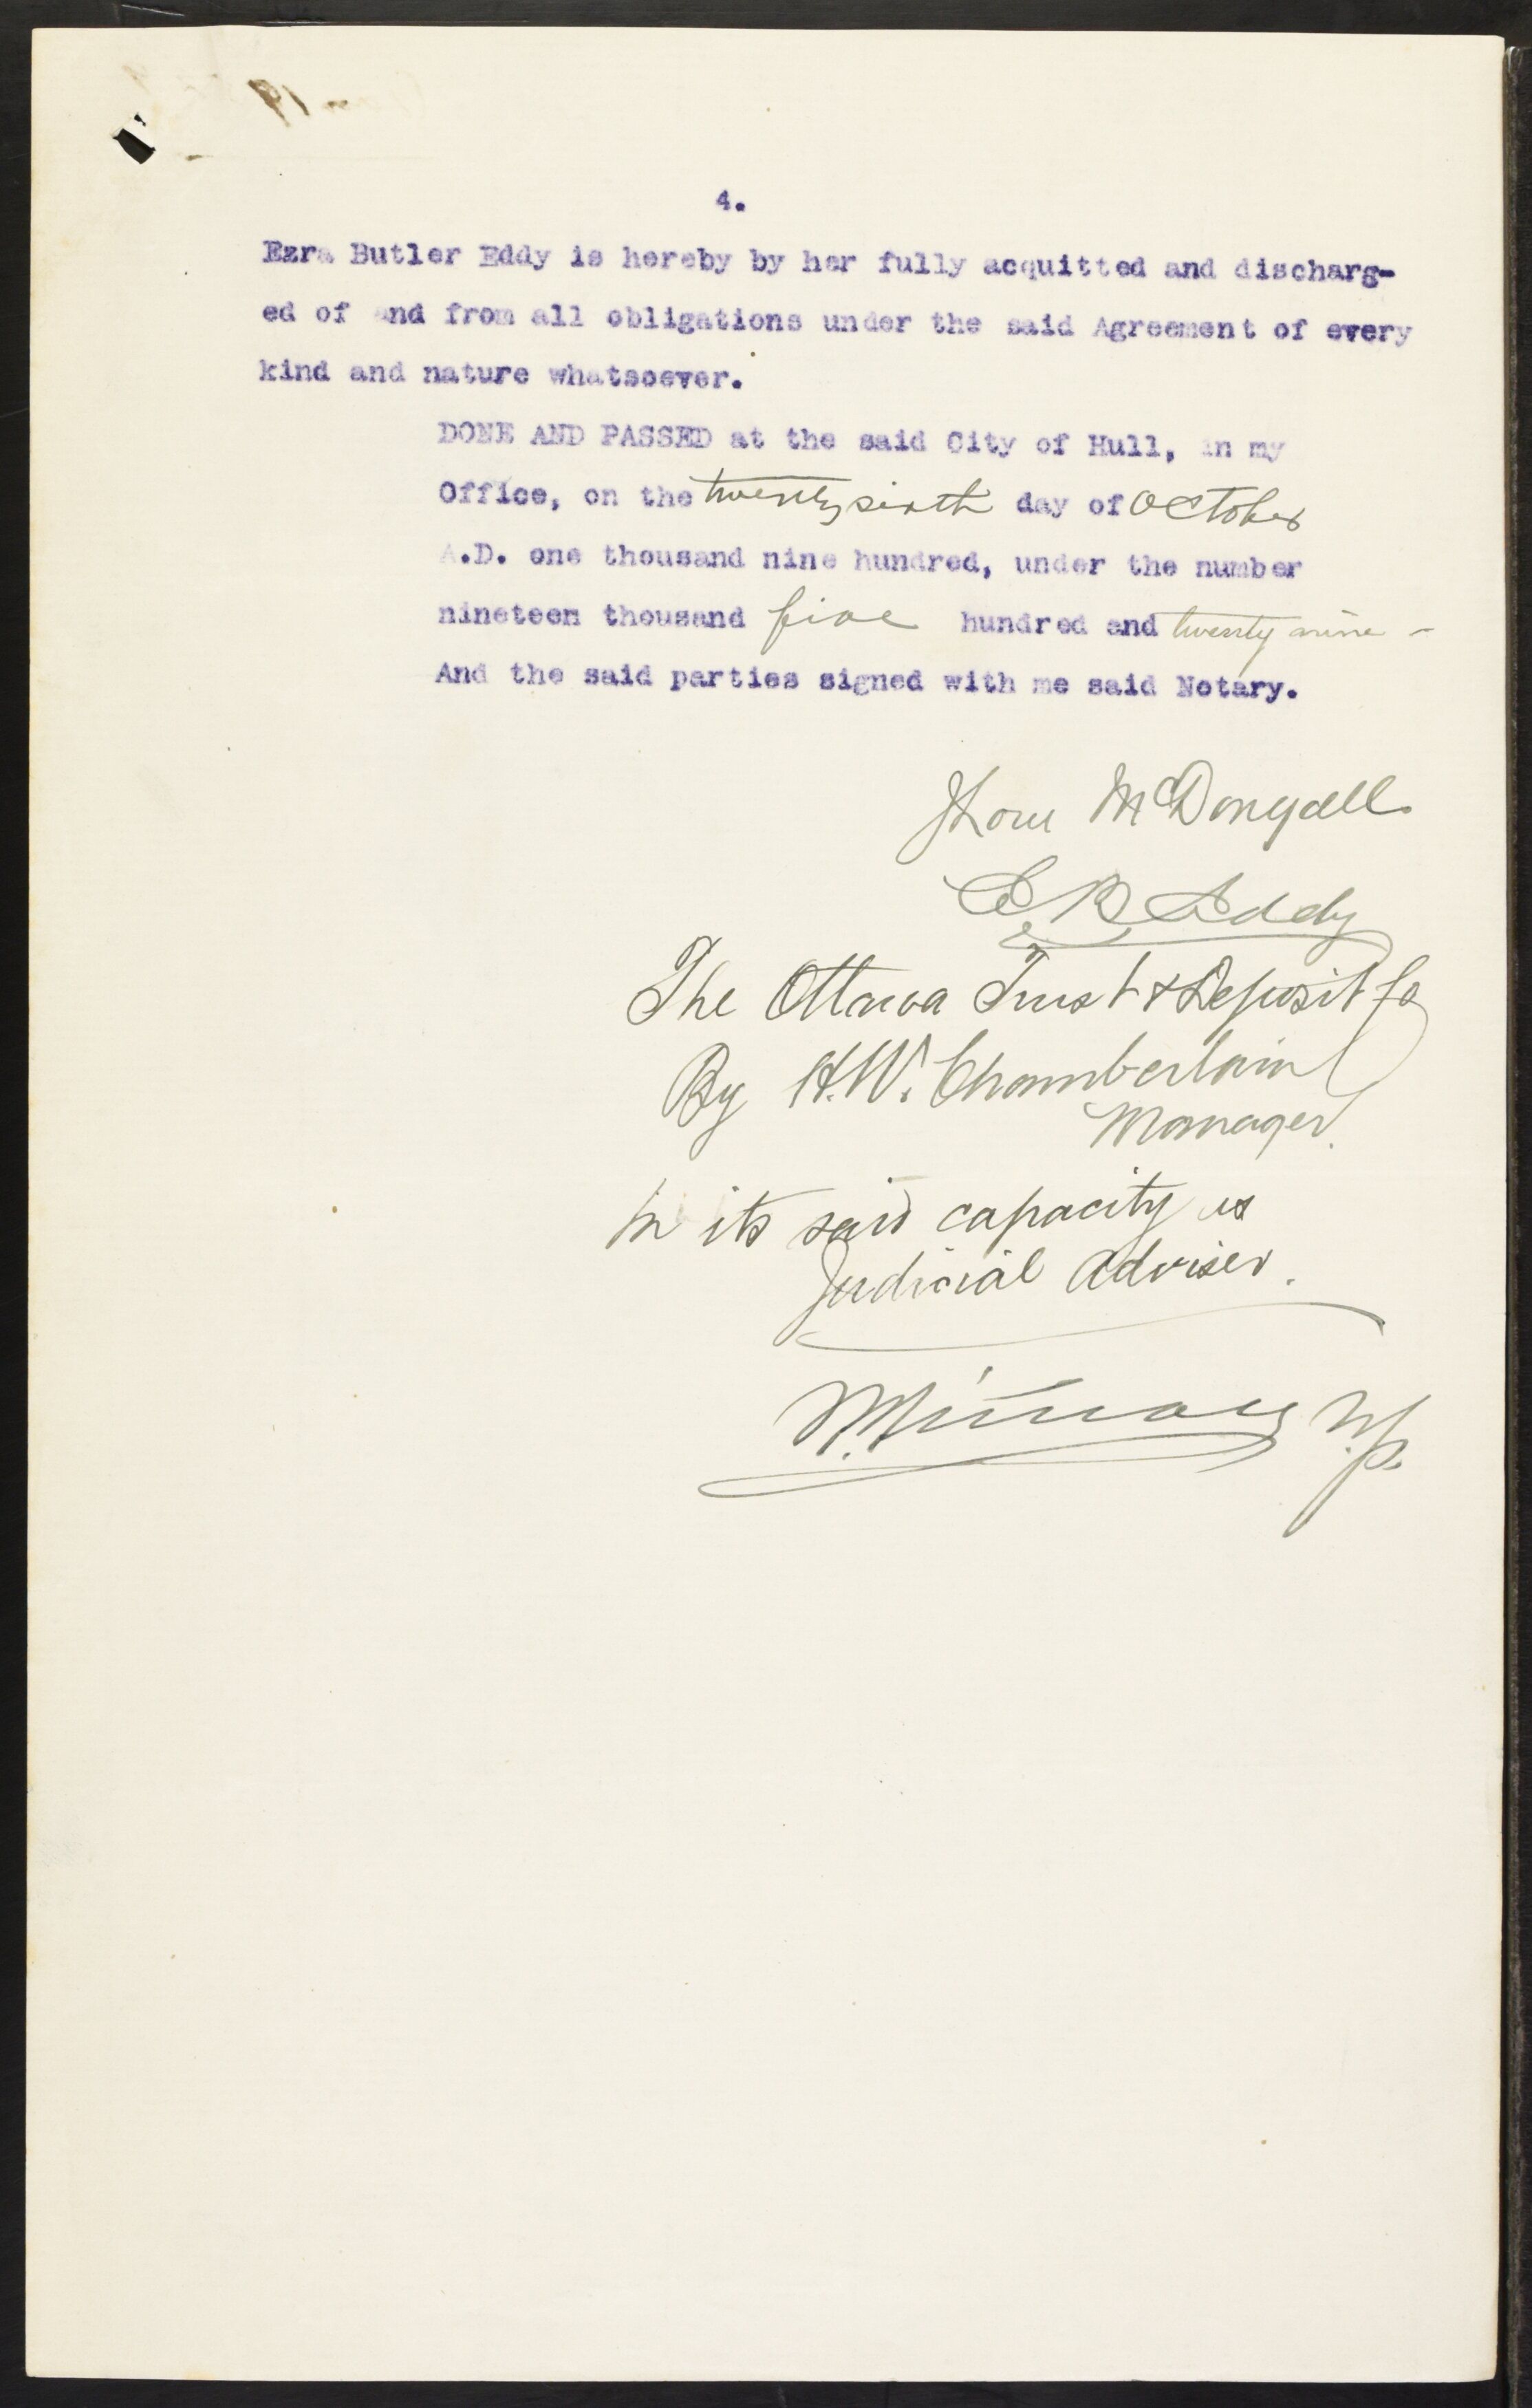 4.
Ezra Butler Eddy is hereby by her fully acquitted and discharg-
ed of and from all obligations under the said Agreement of every
kind and nature whatsoever.
DONE AND PASSED at the said City of Hull, in my
Office, on the twenty sixth day of October
A.D. one thousand nine hundred, under the number
nineteen thousand five hundred and twenty nine -
And the said parties signed with me said Notary.
McDougall
E B Eddy
The Ottawa Trust & Deposit Co
By H.W. Chamberlain
Manager.
in its said capacity as
Judicial Adviser.
N.P.